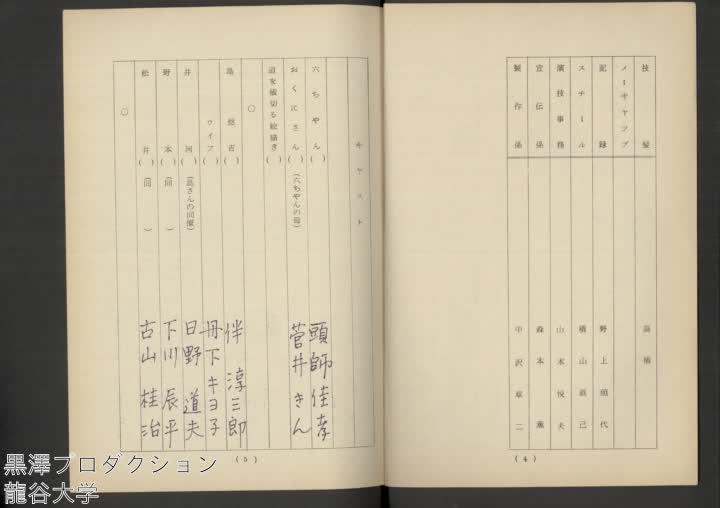 技髪
高橋
メーキャップ
記録
野上照代
スチール
橋山直己
演技事務
山本悦夫
宣伝係
森本薫
製作係
中沢章二
(4)
キャスト
六ちゃん( )
頭師佳孝
おくにさん(六ちゃんの母)
菅井きん
道を横切る絵描き( )
○
島悠吉( )
伴淳三郎
ワイフ( )
丹下キヨ子
井河(島さんの同僚)
日野道夫
野本(同 )
下川辰平
松井(同 )
古山桂治
○
(5)
黒澤プロダクション
龍谷大学